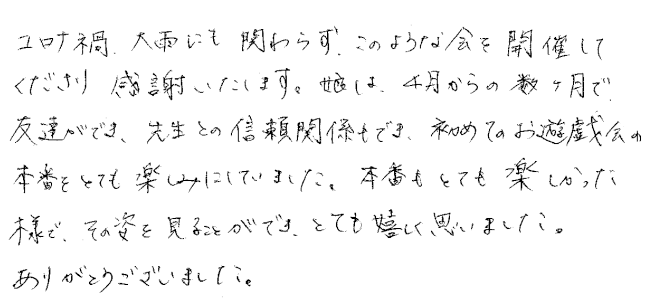 コロナ禍、大雨にも関わらず、このような会を開催して
くださり感謝いたします。娘は、4月からの数ヶ月で、
友達ができ、先生との信頼関係もでき、初めてのお遊戯会の
本番をとても楽しみにしていました。本番もとても楽しかった
様で、その姿を見ることができ、とても嬉しく思いました。
ありがとうございました。